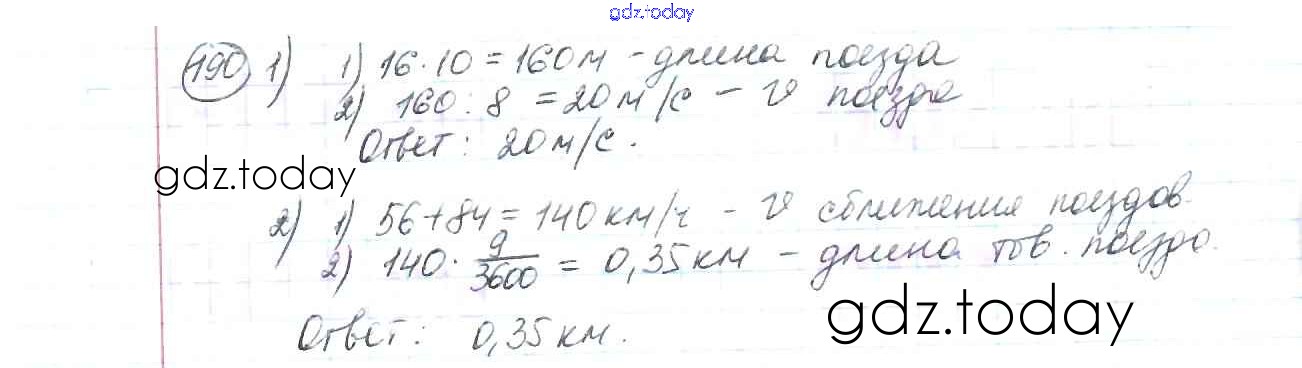 gdz.today
490 1) 1) 16·10 = 160м - длина поезда
2) 160 : 8 = 20м/с - v поезда
Ответ: 20м/с.
gdz.today
2) 1) 56+84 = 140км/ч - v сближения поездов.
2) 140 · 9/3600 = 0,35км - длина тов. поезда.
gdz.today
Ответ: 0,35км.